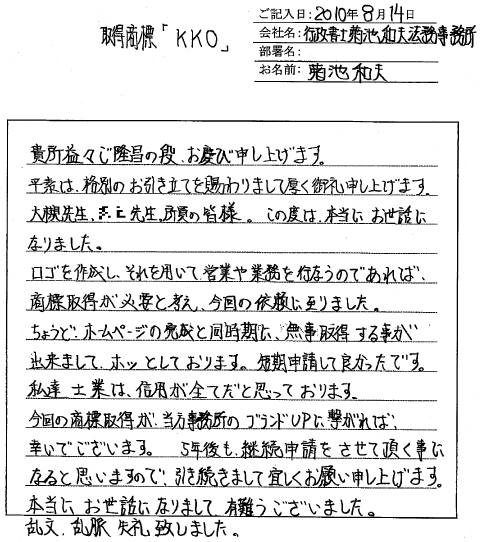 取得商標「KKO」
ご記入日：2010年8月14日
会社名：行政書士菊池和夫法務事務所
部署名：
お名前：菊池和夫
貴所益々ご隆昌の段、お慶び申し上げます。
平素は、格別のお引き立てを賜わりまして厚く御礼申し上げます。
大槻先生、先生、所員の皆様。この度は、本当にお世話に
なりました。
ロゴを作成し、それを用いて営業や業務を行なうのであれば、
商標取得が必要と考え、今回の依頼に至りました。
ちょうど、ホームページの完成と同時期に、無事取得する事が
出来まして、ホッとしております。短期申請して良かったです。
私達士業は、信用が全てだと思っております。
今回の商標取得が、当方事務所のブランドUPに繋がれば、
幸いでございます。 5年後も、継続申請をさせて頂く事に
なると思いますので、引き続きまして宜しくお願い申し上げます。
本当にお世話になりまして、有難うございました。
乱文、乱脈失礼致しました。